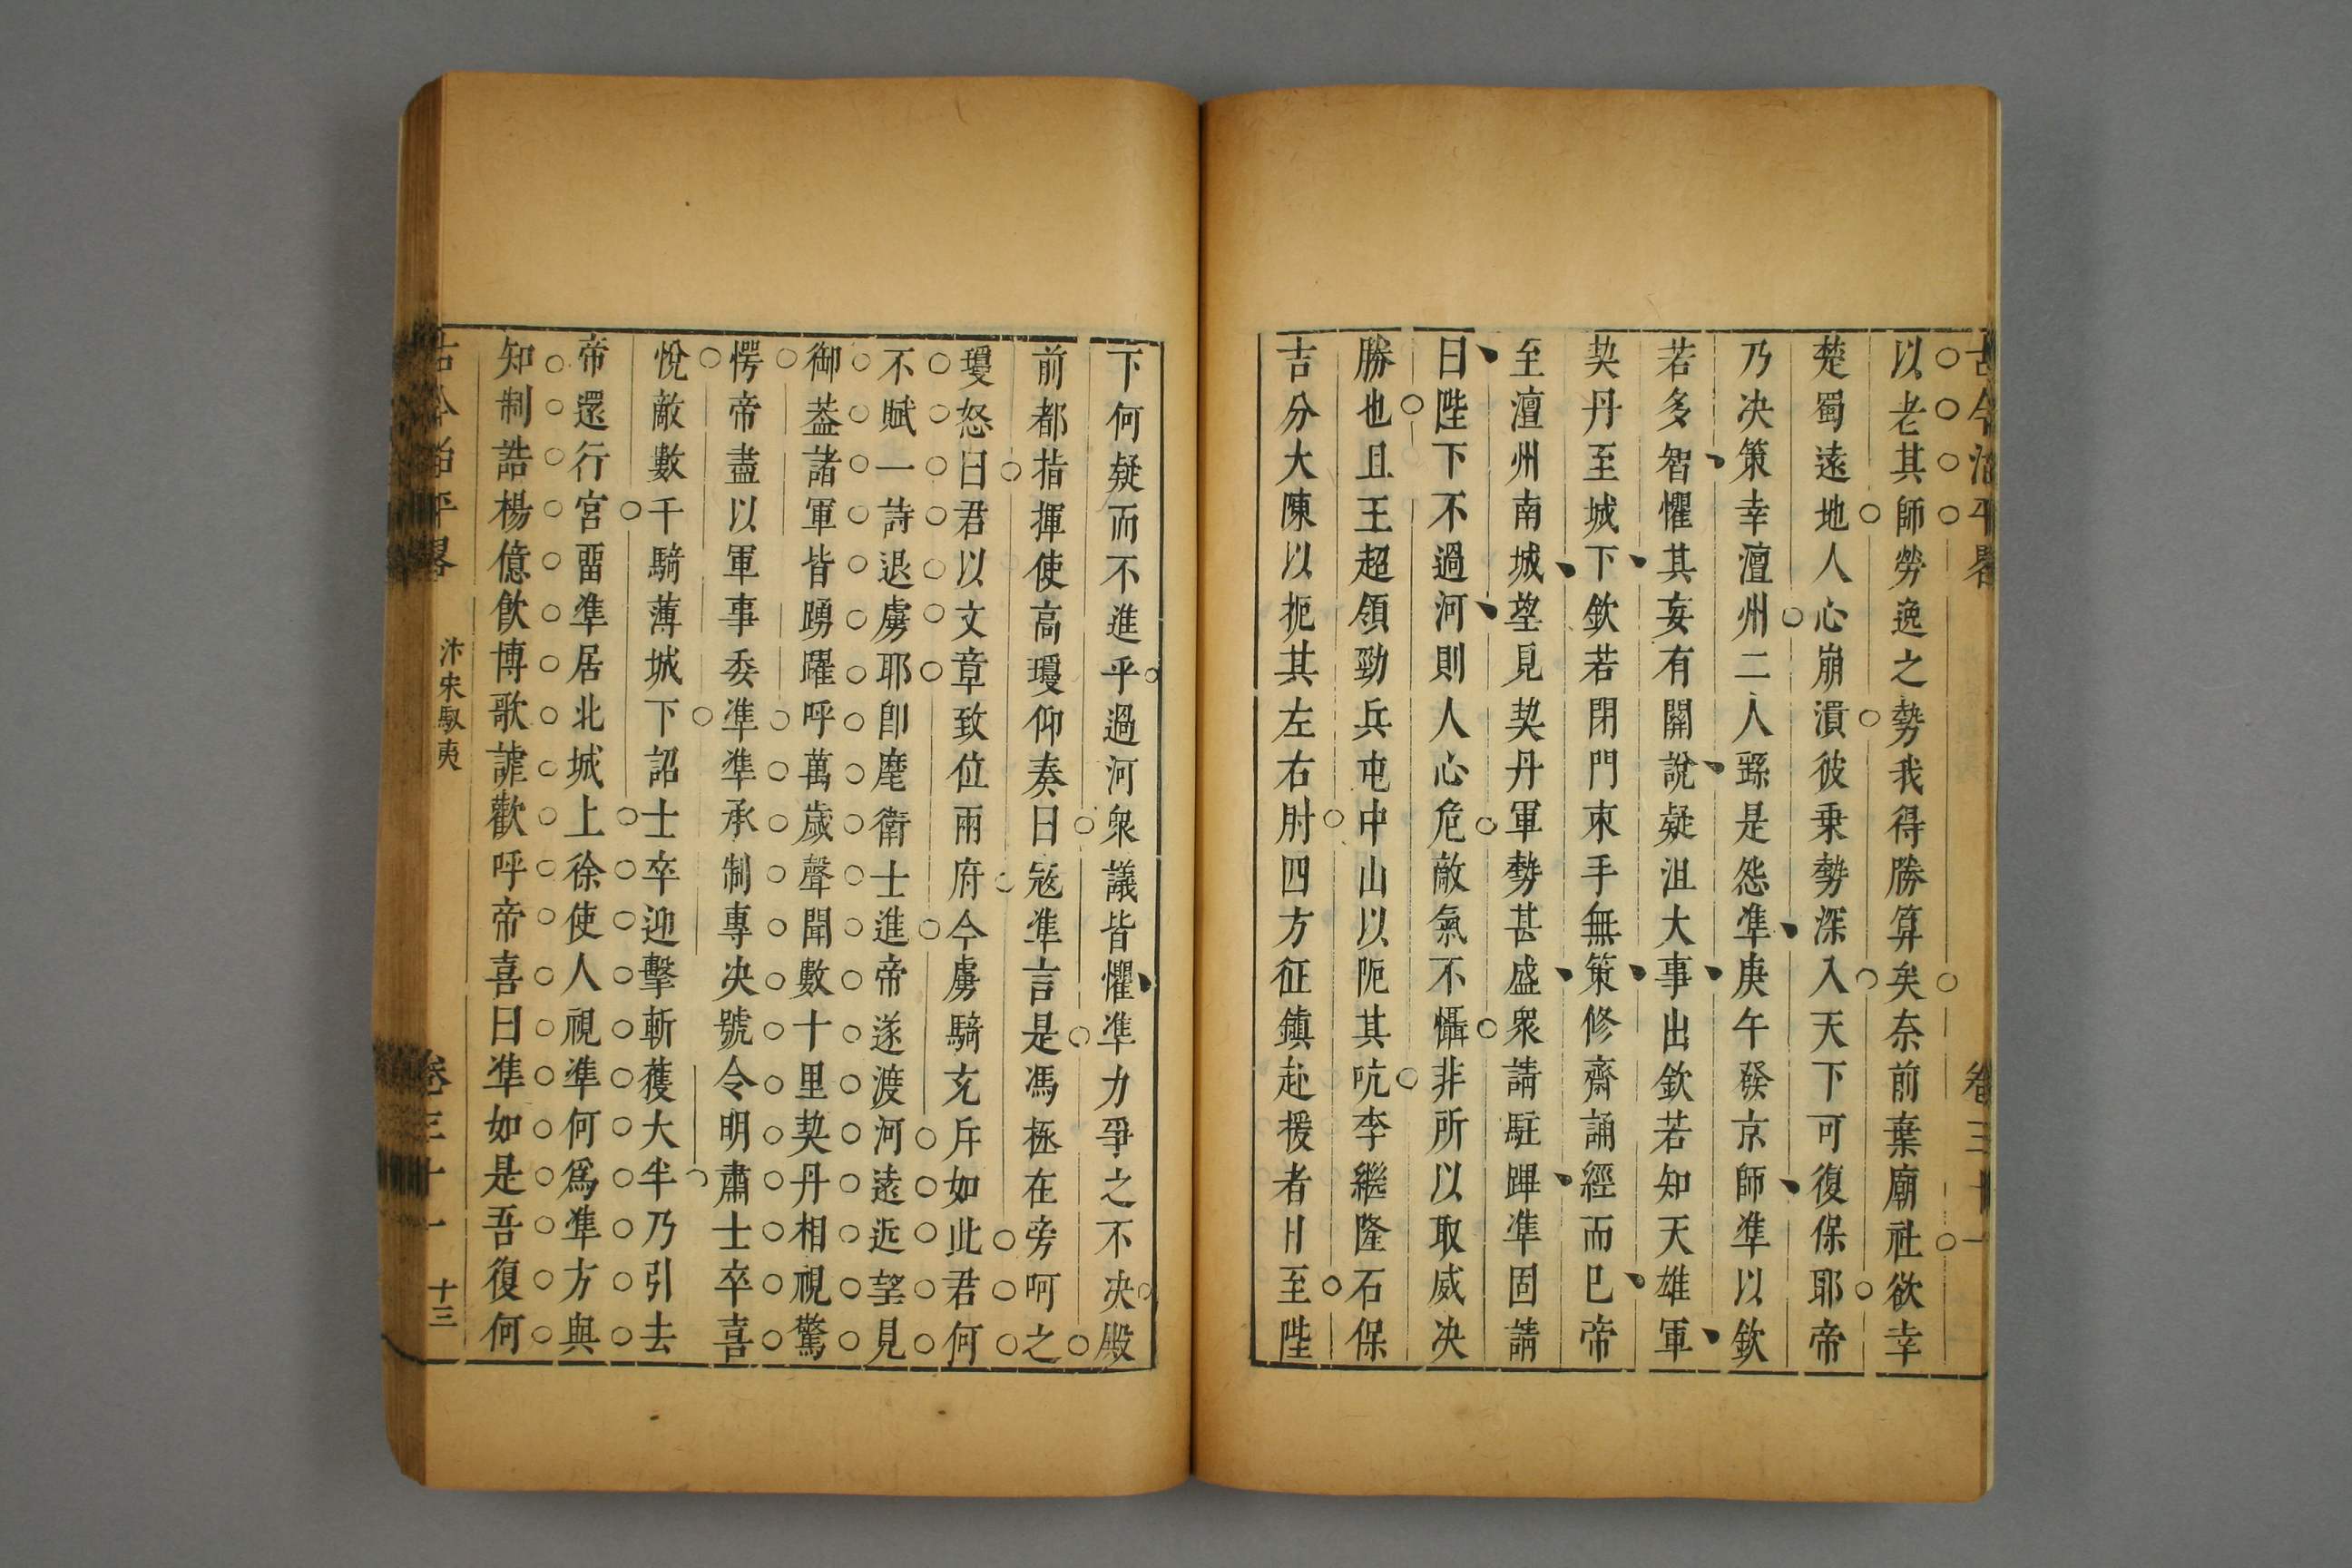 以老其師勞逸之勢我得勝算矣奈前棄廟社欲幸
楚蜀遠地人心崩潰彼乗勢深入天下可復保耶帝
乃决策幸澶州二人繇是怨凖庚午發京師凖以欽
若多智懼其妄有關說疑沮大事出欽若知天雄軍
契丹至城下欽若閉門束手無策修齋誦經而巳帝
至澶州南城望見契丹軍勢甚盛衆請駐蹕凖固請
曰陛下不過河則人心危敵氣不懾非所以取威决
勝也且王超領勁兵屯中山以阨其吭李繼隆石保
吉分大陳以扼其左右肘四方征鎮赴援者日至陛
下何疑而不進乎過河衆議皆懼凖力爭之不决殿
前都指揮使高瓊仰奏曰宼凖言是馮拯在旁呵之
瓊怒曰君以文章致位兩府今虜騎充斥如此君何
不賦一詩退虜耶卽麾衛士進帝遂渡河遠近望見
御葢諸軍皆踴躍呼萬歲聲聞數十里契丹相視驚
愕帝盡以軍事委凖凖承制專决號令明肅士卒喜
悅敵數千騎薄城下詔士卒迎擊斬獲大半乃引去
帝還行宮畱凖居北城上徐使人視凖何爲凖方與
知制誥楊億飲博歌謔歡呼帝喜曰凖如是吾復何
古今治平畧 汴宋馭夷 卷三十一 十三